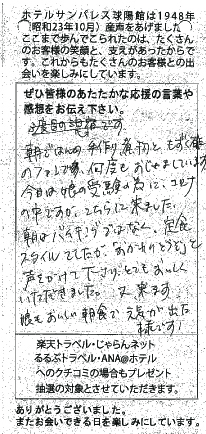 ホテルサンパレス球陽館は1948年
（昭和23年10月）産声をあげました
ここまで歩んでこられたのは、たくさん
のお客様の笑顔と、支えがあったからで
す。これからもたくさんのお客様との出
会いを楽しみにしています。
ぜひ皆様のあたたかな応援の言葉や
感想をお伝え下さい。
朝ごはんの手作り魚物と、もずく
のファンで、何度もおじゃましています
今日は娘の受験の為に、コロナ
の中ですが、こちらに来ました。
朝はバイキングではなく、定食
スタイルでしたが、おかわりどうぞと
声をかけて下さり、とてもおいしく
いただきました。又来ます
娘もおいしい朝食で元気が出た
様です！
楽天トラベル・じゃらんネット
るるぶトラベル・ANA@ホテル
へのクチコミの場合もプレゼント
抽選の対象とさせていただきます。
ありがとうございました。
またお会いできる日を楽しみにしています。